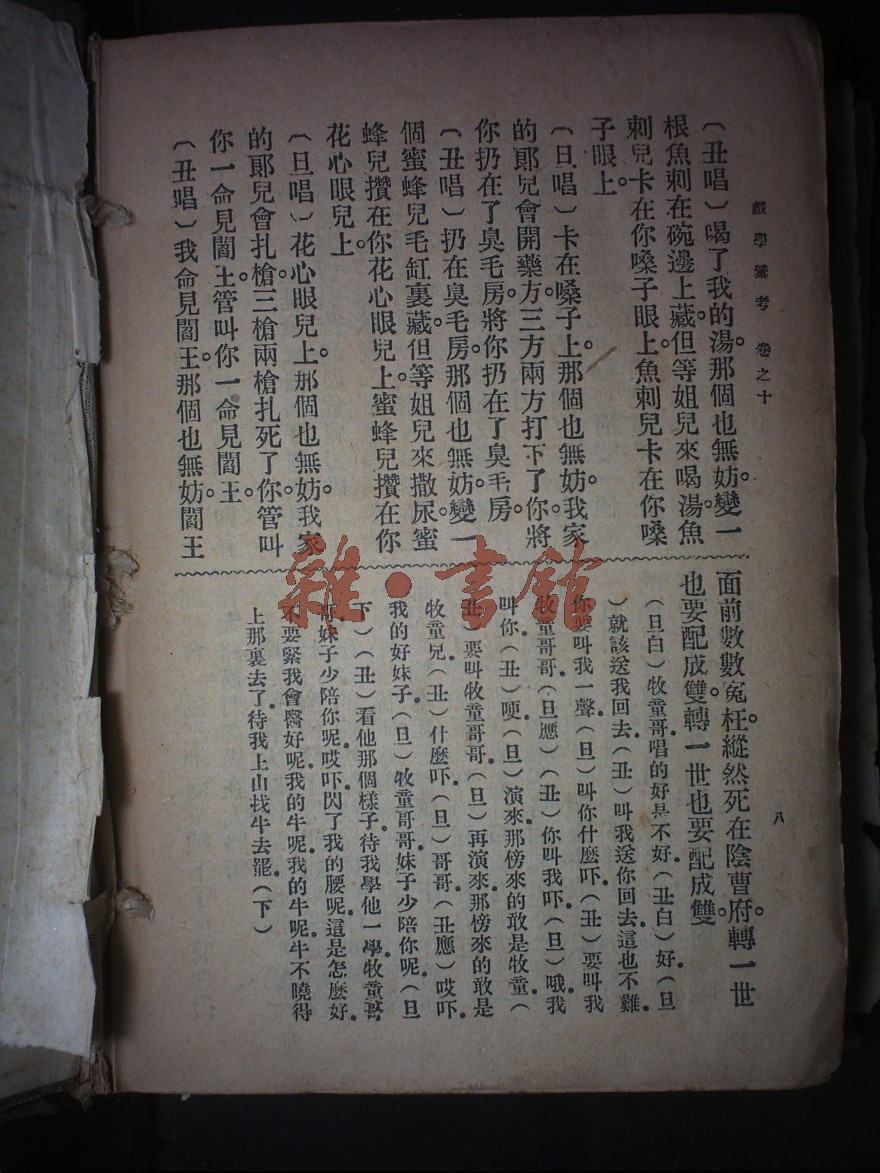 戲學彙考　卷之十
（丑唱）喝了我的湯。那個也無妨。變一
根魚刺在碗邊上藏。但等姐兒來喝湯魚
刺兒卡在你嗓子眼上魚刺兒卡在你嗓
子眼上
（旦唱）卡在嗓子上。那個也無妨。我家
的郎兒會開藥方三方兩方打下了你。將
你扔在了臭毛房。將你扔在了臭毛房。
（丑唱）扔在臭毛房。那個也無妨。變一
個蜜蜂兒毛缸裏藏。但等姐兒來撒尿蜜
蜂兒攢在你花心眼兒上。蜜蜂兒攢在你
花心眼兒上。
（旦唱）花心眼兒上。那個也無妨。我家
的郎兒會扎槍。三槍兩槍扎死了你。管叫
你一命見閻王。管叫你一命見閻王。
（丑唱）我命見閻王。那個也無妨。閻王
面前數數冤枉。縱然死在陰曹府。轉一世
也要配成雙。轉一世也要配成雙。
（旦白）牧童哥唱的好是不好。（丑白）好。（旦
）就該送我回去。（丑）叫我送你回去。這也不難。
你要叫我一聲。（旦）叫你什麼吓。（丑）要叫我
牧童哥哥。（旦應）（丑）你叫我吓。（旦）哦我
叫你。（丑）哽。（旦）演來那傍來的敢是牧童。（
丑）要叫牧童哥哥。（旦）再演來。那傍來的敢是
牧童兒。（丑）什麼吓。（旦）哥哥。（丑應）哎吓。
我的好妹子。（旦）牧童哥哥妹子少陪你呢。（旦
下）（丑）看他那個樣子待我學他一學。牧童哥
哥妹子少陪你呢。哎吓。閃了我的腰呢。這是怎麼好。
不要緊我會醫好呢。我的牛呢。我的牛呢。牛不曉得
上那裏去了。待我上山找牛去罷。（下）
八
雜·書館